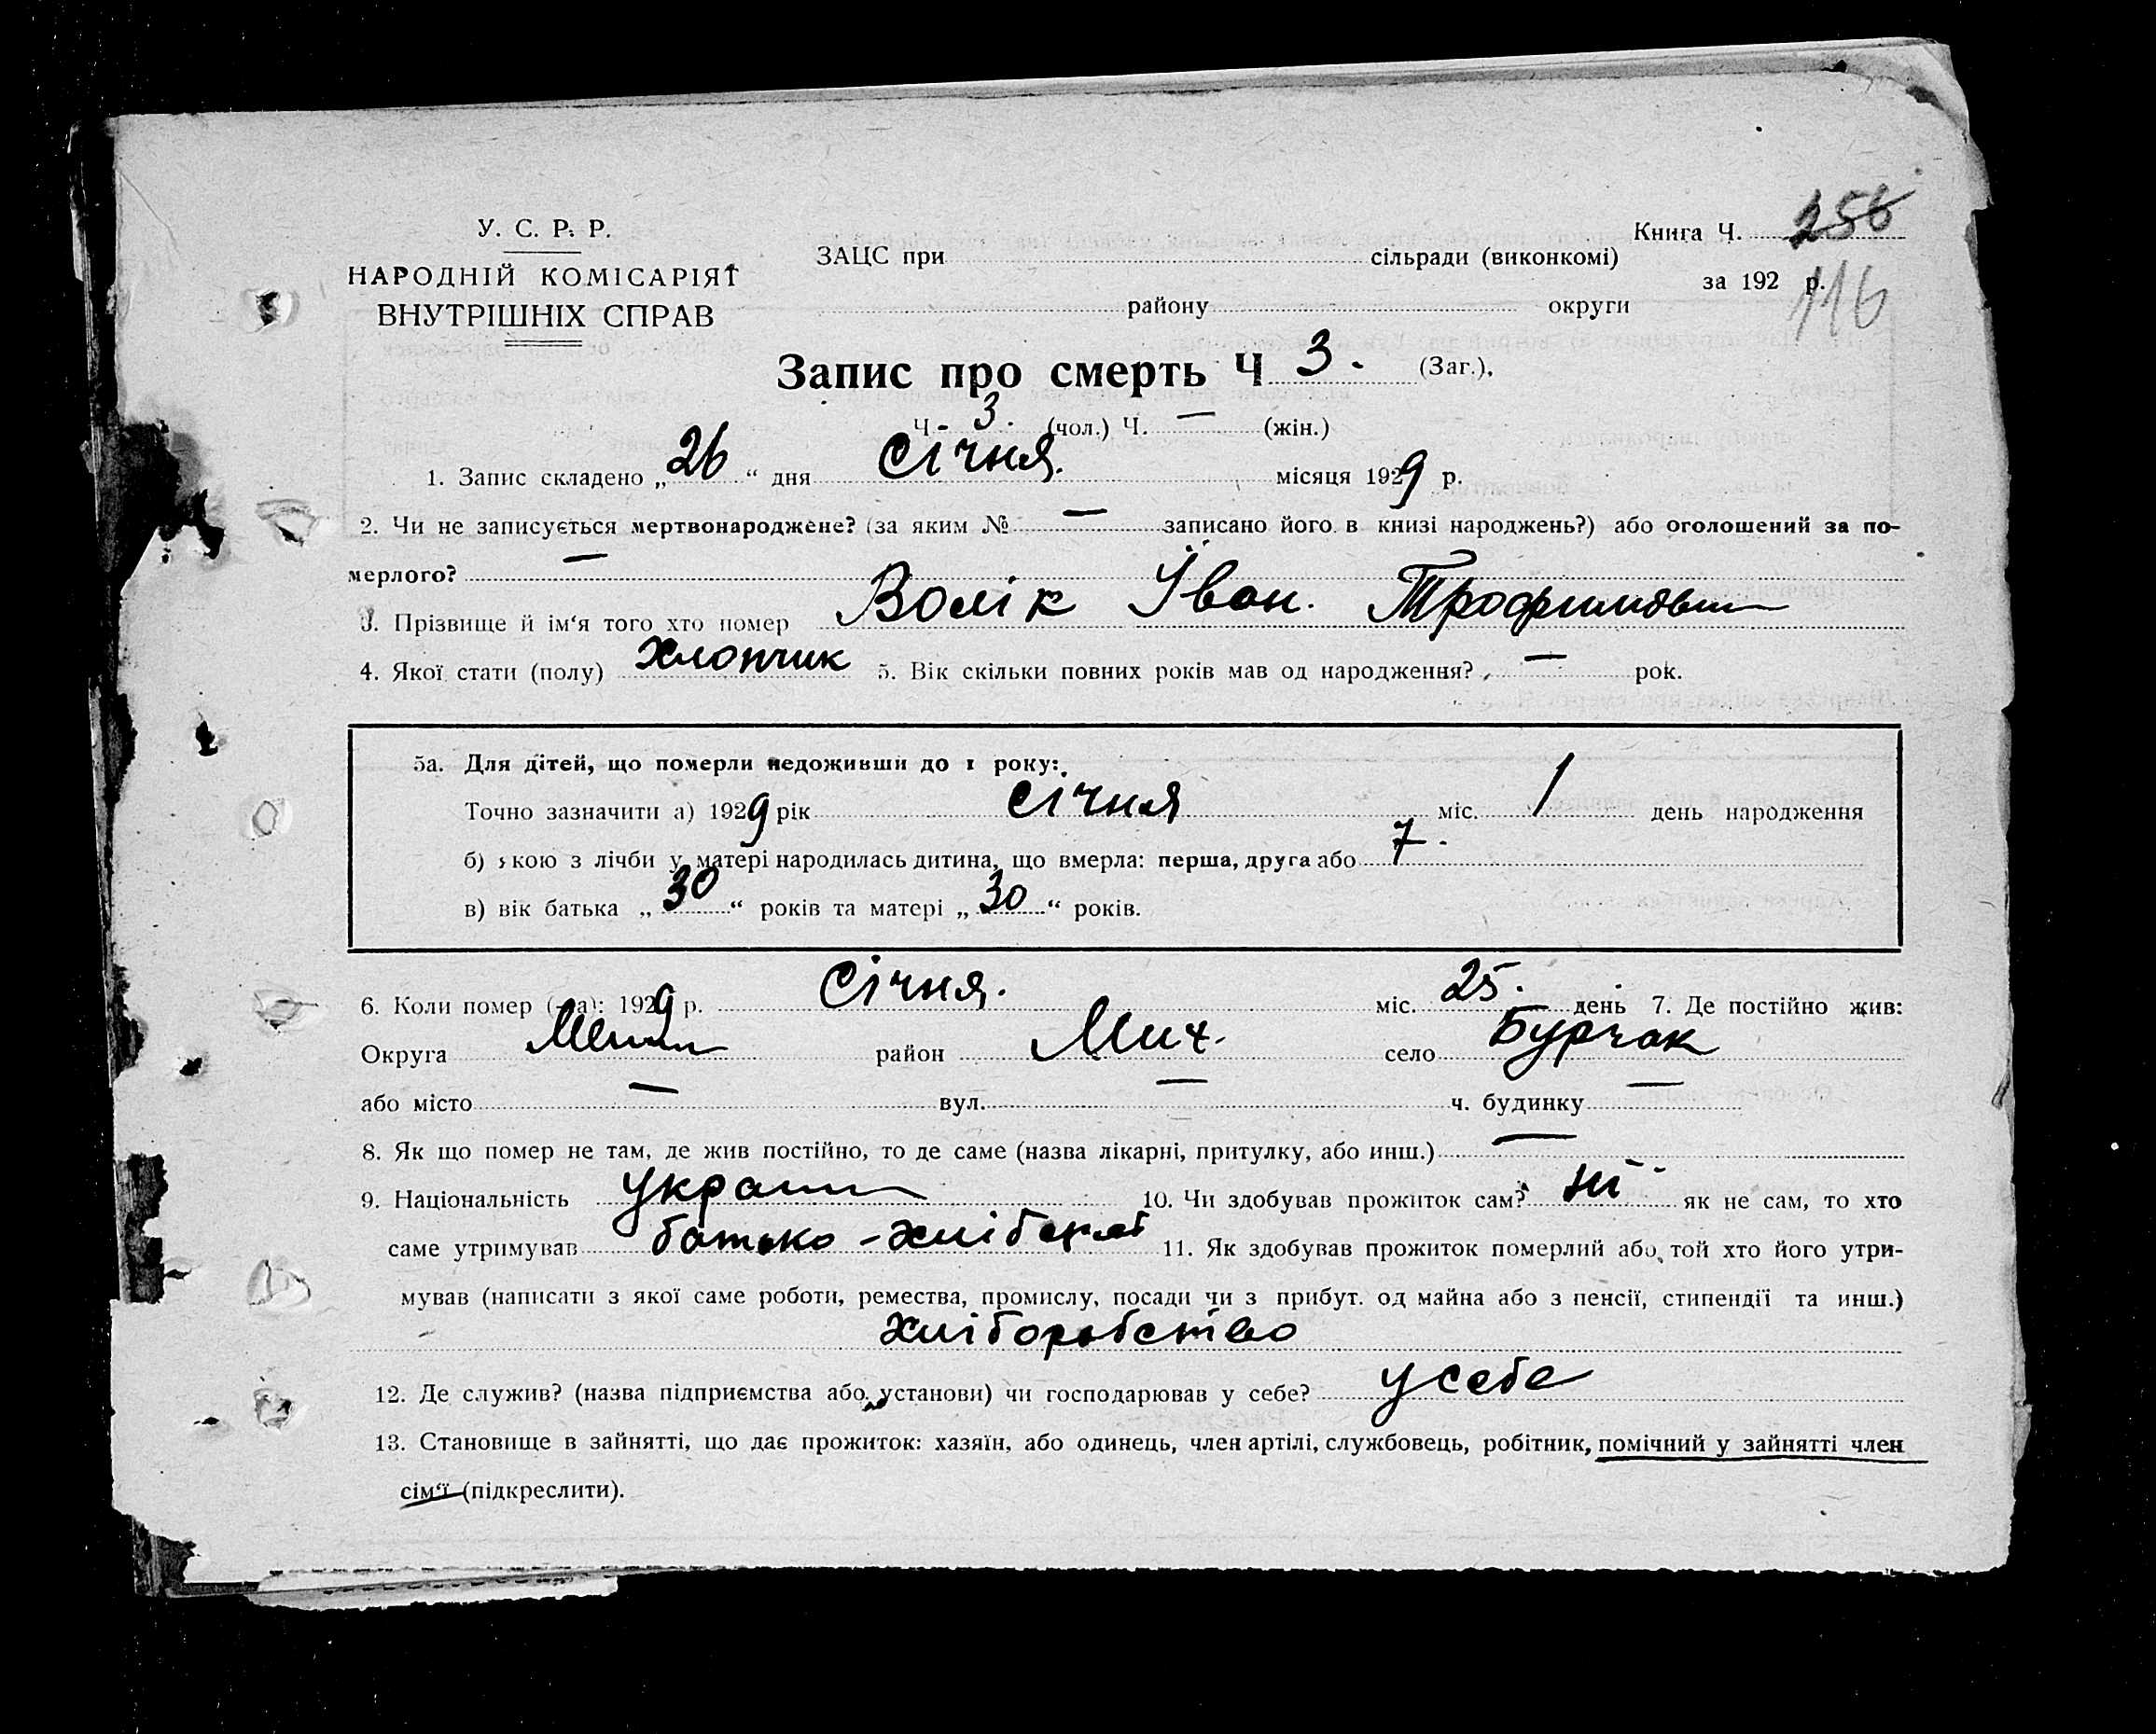 У. С. Р. Р.
НАРОДНІЙ КОМІСАРІЯТ
ВНУТРІШНІХ СПРАВ
Книга Ч. 256
за 192 р. 116
ЗАЦС при сільради (виконкомі)
району округи
Запис про смерть Ч 3. (Заг.),
Ч 3. (чол.) Ч. — (жін.)
1. Запис складено „26“ дня Січня. місяця 1929 р.
2. Чи не записується мертвонароджене? (за яким № — записано його в книзі народжень?) або оголошений за по-
мерлого? —
3. Прізвище й ім'я того хто помер Волік Іван. Трофимович
4. Якої стати (полу) Хлопчик 5. Вік скільки повних років мав од народження? — рок.
5а. Для дітей, що померли недоживши до 1 року:
Точно зазначити а) 1929 рік січня міс. 1 день народження
б) якою з лічби у матері народилась дитина, що вмерла: перша, друга або 7.
в) вік батька „30“ років та матері „30“ років.
6. Коли помер (-ла): 1929 р. Січня. міс. 25. день 7. Де постійно жив:
Округа район Мих. село Бурчак
або місто — вул. — ч. будинку —
8. Як що помер не там, де жив постійно, то де саме (назва лікарні, притулку, або инш.) —
9. Національність 10. Чи здобував прожиток сам? ні як не сам, то хто
саме утримував батько - хлібороб 11. Як здобував прожиток померлий або той хто його утри-
мував (написати з якої саме роботи, ремества, промислу, посади чи з прибут. од майна або з пенсії, стипендії та инш.)
хліборобство
12. Де служив? (назва підприємства або установи) чи господарював у себе? у себе
13. Становище в зайнятті, що дає прожиток: хазяїн, або одинець, член артілі, службовець, робітник, помічний у зайнятті член
сім'ї (підкреслити).